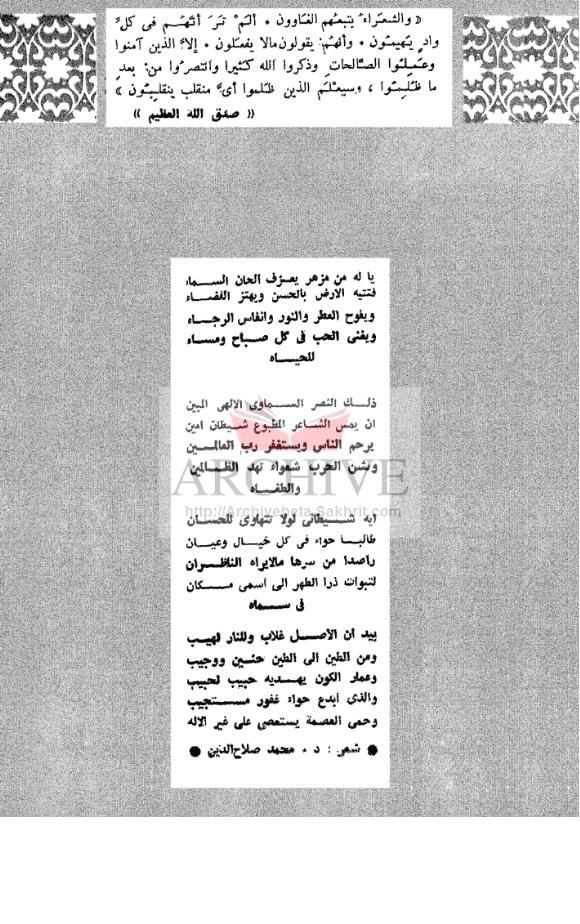 « والشعراء يتبعهم الغاوون • ألم تر أنهم فى كل
واد يهيمون • وأنهم يقولون مالا يفعلون • إلا الذين آمنوا
وعملوا الصالحات وذكروا الله كثيرا وانتصروا من بعد
ما ظلموا ، وسيعلم الذين ظلموا أى منقلب ينقلبون »
« صدق الله العظيم »
يا له من مزهر يعزف الحان السماء
فتتيه الارض بالحسن ويهتز الفضاء
ويفوح العطر والنور وانفاس الرجاء
ويغنى الحب فى كل صباح ومساء
للحياه
ذلك النصر السماوى الالهى المبين
ان يمس الشاعر المطبوع شيطان امين
يرحم الناس ويستغفر رب العالمين
ويشن الحرب شعواء تهد الظالمين
والطغاه
ARCHIVE
http://Archivebeta.Sakhrit.com
ايه شيطانى لولا تتهاوى للحسان
طالبا حواء فى كل خيال وعيان
راصدا من سرها مالايراه الناظران
لتبوات ذرا الطهر الى اسمى مكان
فى سماه
بيد ان الاصل غلاب وللنار لهيب
ومن الطين الى الطين حنين ووجيب
وعمار الكون يهديه حبيب لحبيب
والذى ابدع حواء غفور مستجيب
وحمى العصمة يستعصى على غير الاله
● شعر : د • محمد صلاح الدين ●